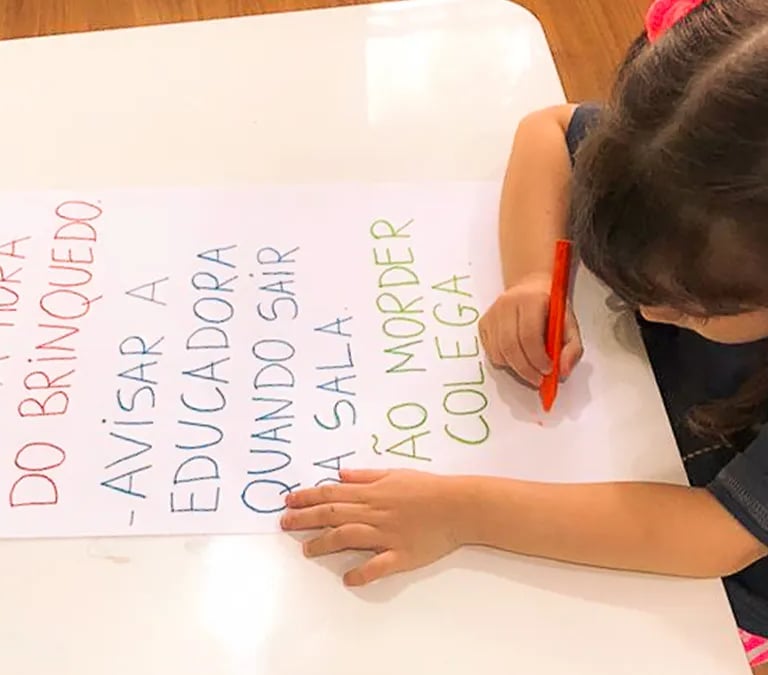 HORA
DO BRINQUEDO.
-AVISAR A
EDUCADORA
QUANDO SAIR
DA SALA.
ÃO MORDER
COLEGA.